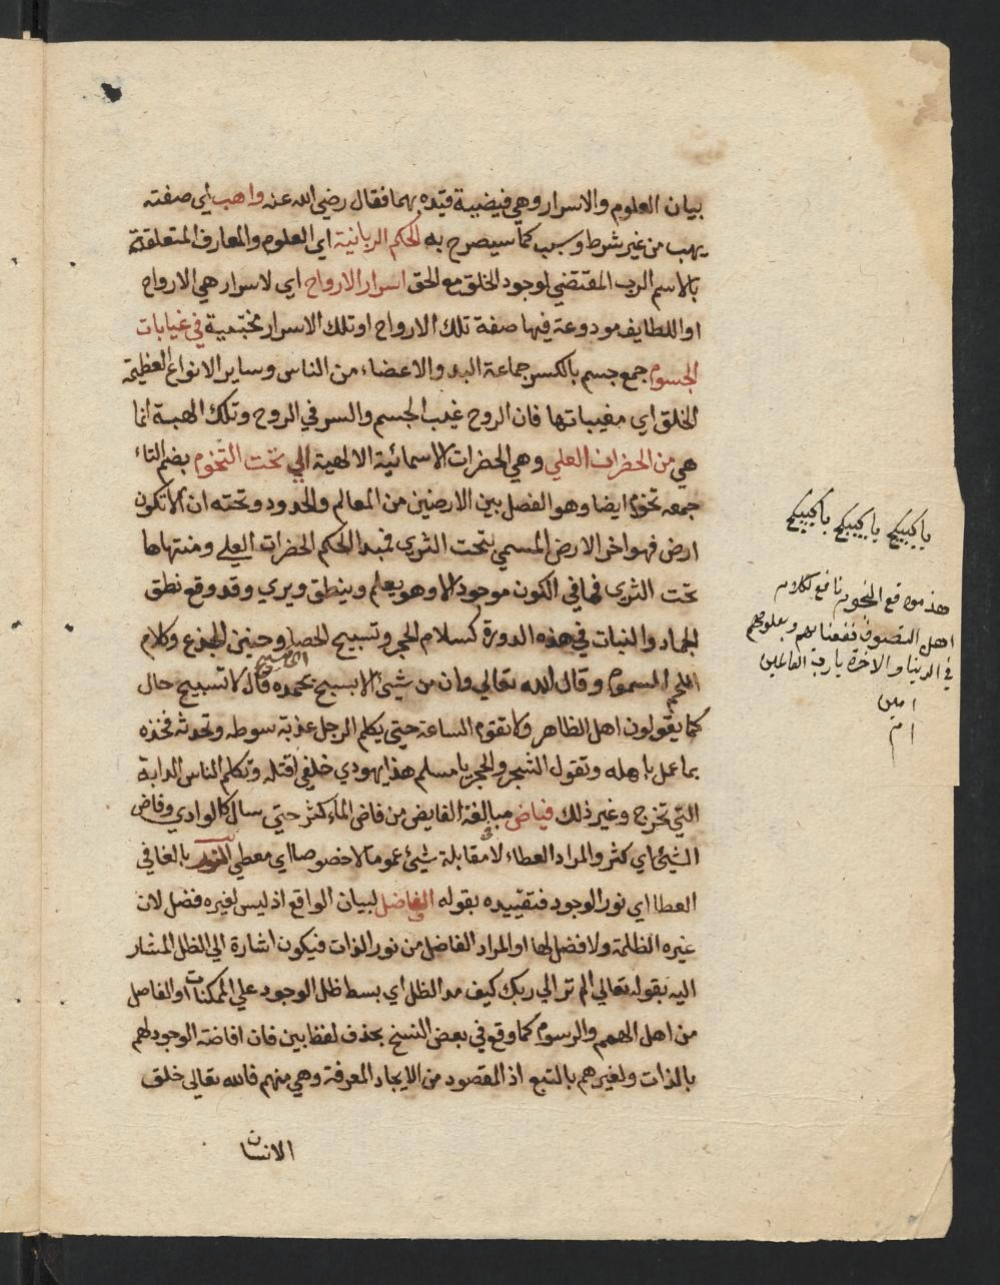 بيان العلوم والاسرار وهي فيضية قيده بهما فقال رضي الله عنه واهب اي صفته
يهب من غير شرط وسبب كما سيصرح به الحكم الربانية اي العلوم والمعارف المتعلقة
بالاسم الرب المقتضي لوجود الخلق مع الحق اسرار الارواح اي لاسرار هي الارواح
او اللطايف مودوعة فيها صفة تلك الارواح او تلك الاسرار مختبية في غيابات
الجسوم جمع جسم بالكسر جماعة البدن والاعضاء من الناس وساير الانواع العظيمة
الخلق اي مغيباتها فان الروح غيب الجسم والسر في الروح وتلك الهبة انما
هي من الحضرات العلي وهي الحضرات الاسمائية الالهية الي تحت التخوم بضم التاء
جمعه تخوم ايضا وهو الفصل بين الارضين من المعالم والحدود وتحته ان لا تكون
ارض فهو اخر الارض المسمي بتحت الثري فمبدا الحكم الحضرات العلي ومنتهاها
تحت الثري فما في الكون موجود الا وهو يعلم وينطق ويري وقد وقع نطق
الجماد والنبات في هذه الدورة كسلام الحجر وتسبيح الحصا وحنين الجذع وكلام
اللحم المسموم وقال الله تعالي وان من شيئ الا يسبح بحمده قال لا تسبيح حال
كما يقولون اهل الظاهر ولا تقوم الساعة حتي يكلم الرجل عذبة سوطه وتحدثه فخذه
بما عمل باهله وتقول الشجر والحجر يا مسلم هذا يهودي خلفي اقتله وتكلم الناس الدابة
التي تخرج وغير ذلك فياض مبالغة الفايض من فاض الماء كثر حتي سال كالوادي وفاض
الشيئ اي كثر والمراد العطاء لا مقابلة شيئ عموما لا خصوصا اي معطي النور بالغا في
العطا اي نور الوجود فتقييده بقوله الفاضل لبيان الواقع اذ ليس لغيره فضل لان
غيره الظلمة ولا فضل لها او المراد الفاضل من نور الذات فيكون اشارة الي الظل المشار
اليه بقوله تعالي الم تر الي ربك كيف مد الظل اي بسط ظل الوجود علي الممكنات او الفاصل
من اهل الهمم والرسوم كما وقع في بعض النسخ بحذف لفظ بين فان افاضة الوجود لهم
بالذات ولغيرهم بالتبع اذ المقصود من الايجاد المعرفة وهي منهم فالله تعالي خلق
الانسان
يا كبيكج يا كبيكج يا كبيكج
هذ مواقع النجوم نافع لكلام
اهل التصوف نفعنا بهم وبعلومهم
في الدنيا والاخرة يا رب العالمين
امين
ا م